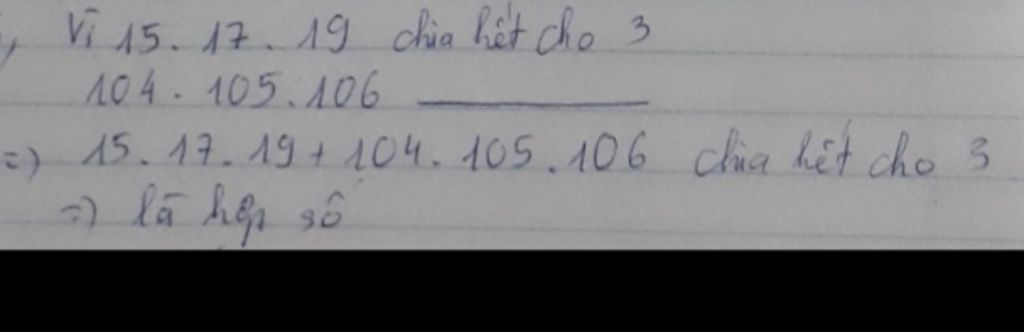 , Vì 15. 17. 19 chia hết cho 3
104. 105. 106 ————
=) 15. 17. 19 + 104. 105. 106 chia hết cho 3
=) là hợp số